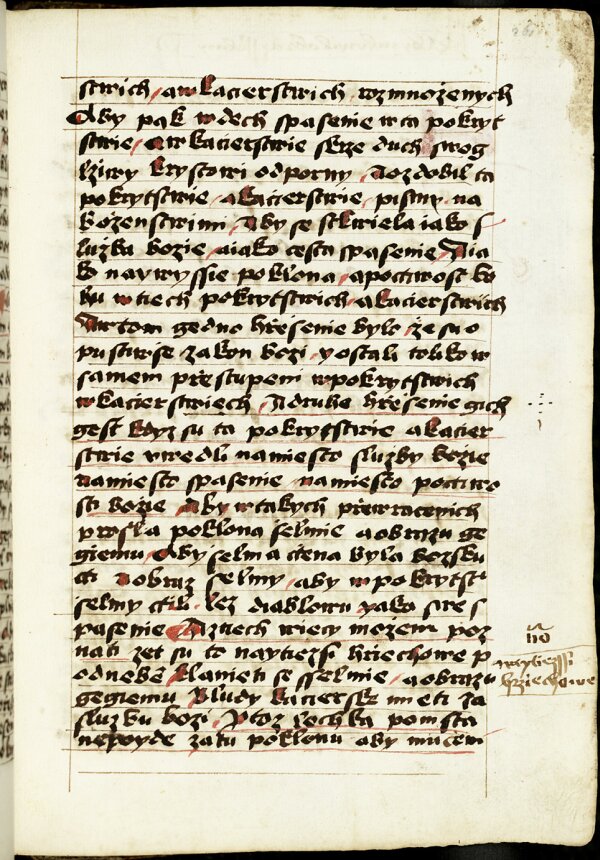 stwich a w kacierstwich rozmnożenych
Aby pak w dech spasenie w ta pokryt
stwie a w kacierstwie skrze duch swog
lziwy krystowi odporny A ozdobil ta
pokrytstwie a kacierstwie pismy na
bozenstwimi Aby se stkwiela iako s
luzba bozie a iako cesta spasenie A ia
ko naywyssie poklona a poctiwost bo
hu w tiech pokrytstwich a kacierstwich
A w tom gedno hrzesenie bylo ze su o
pustiwsse zakon bozi y ostali toliko w
samem przestupeni w pokrytstwich
w kacierstwiech A druhe hrzesenie gich
gest kdyz su ta pokrytstwie a kacier
stwie uwedli na miesto sluzby bozie
na miesto spasenie na miesto poctiwo
sti bozie Aby w takych przewracenich
prossla poklona sselmie a obrazu ge
giemu Aby sselma ctena byla bozsku
cti a obraz sselmy aby w pokrytst
sselmy ctili lez diablowu yako swe s
pasenie A z tiech wiecy mozem poz
nati zet su to naytiezsi hriechowe p
od nebem klanieti se sselmie a obrazu
gegiemu Bludy kacierske mieti za
sluzbu bozi Y toz lechka pomsta
nepoyde za tu poklonu aby mucem
no
naytiezssi
hrziechowe